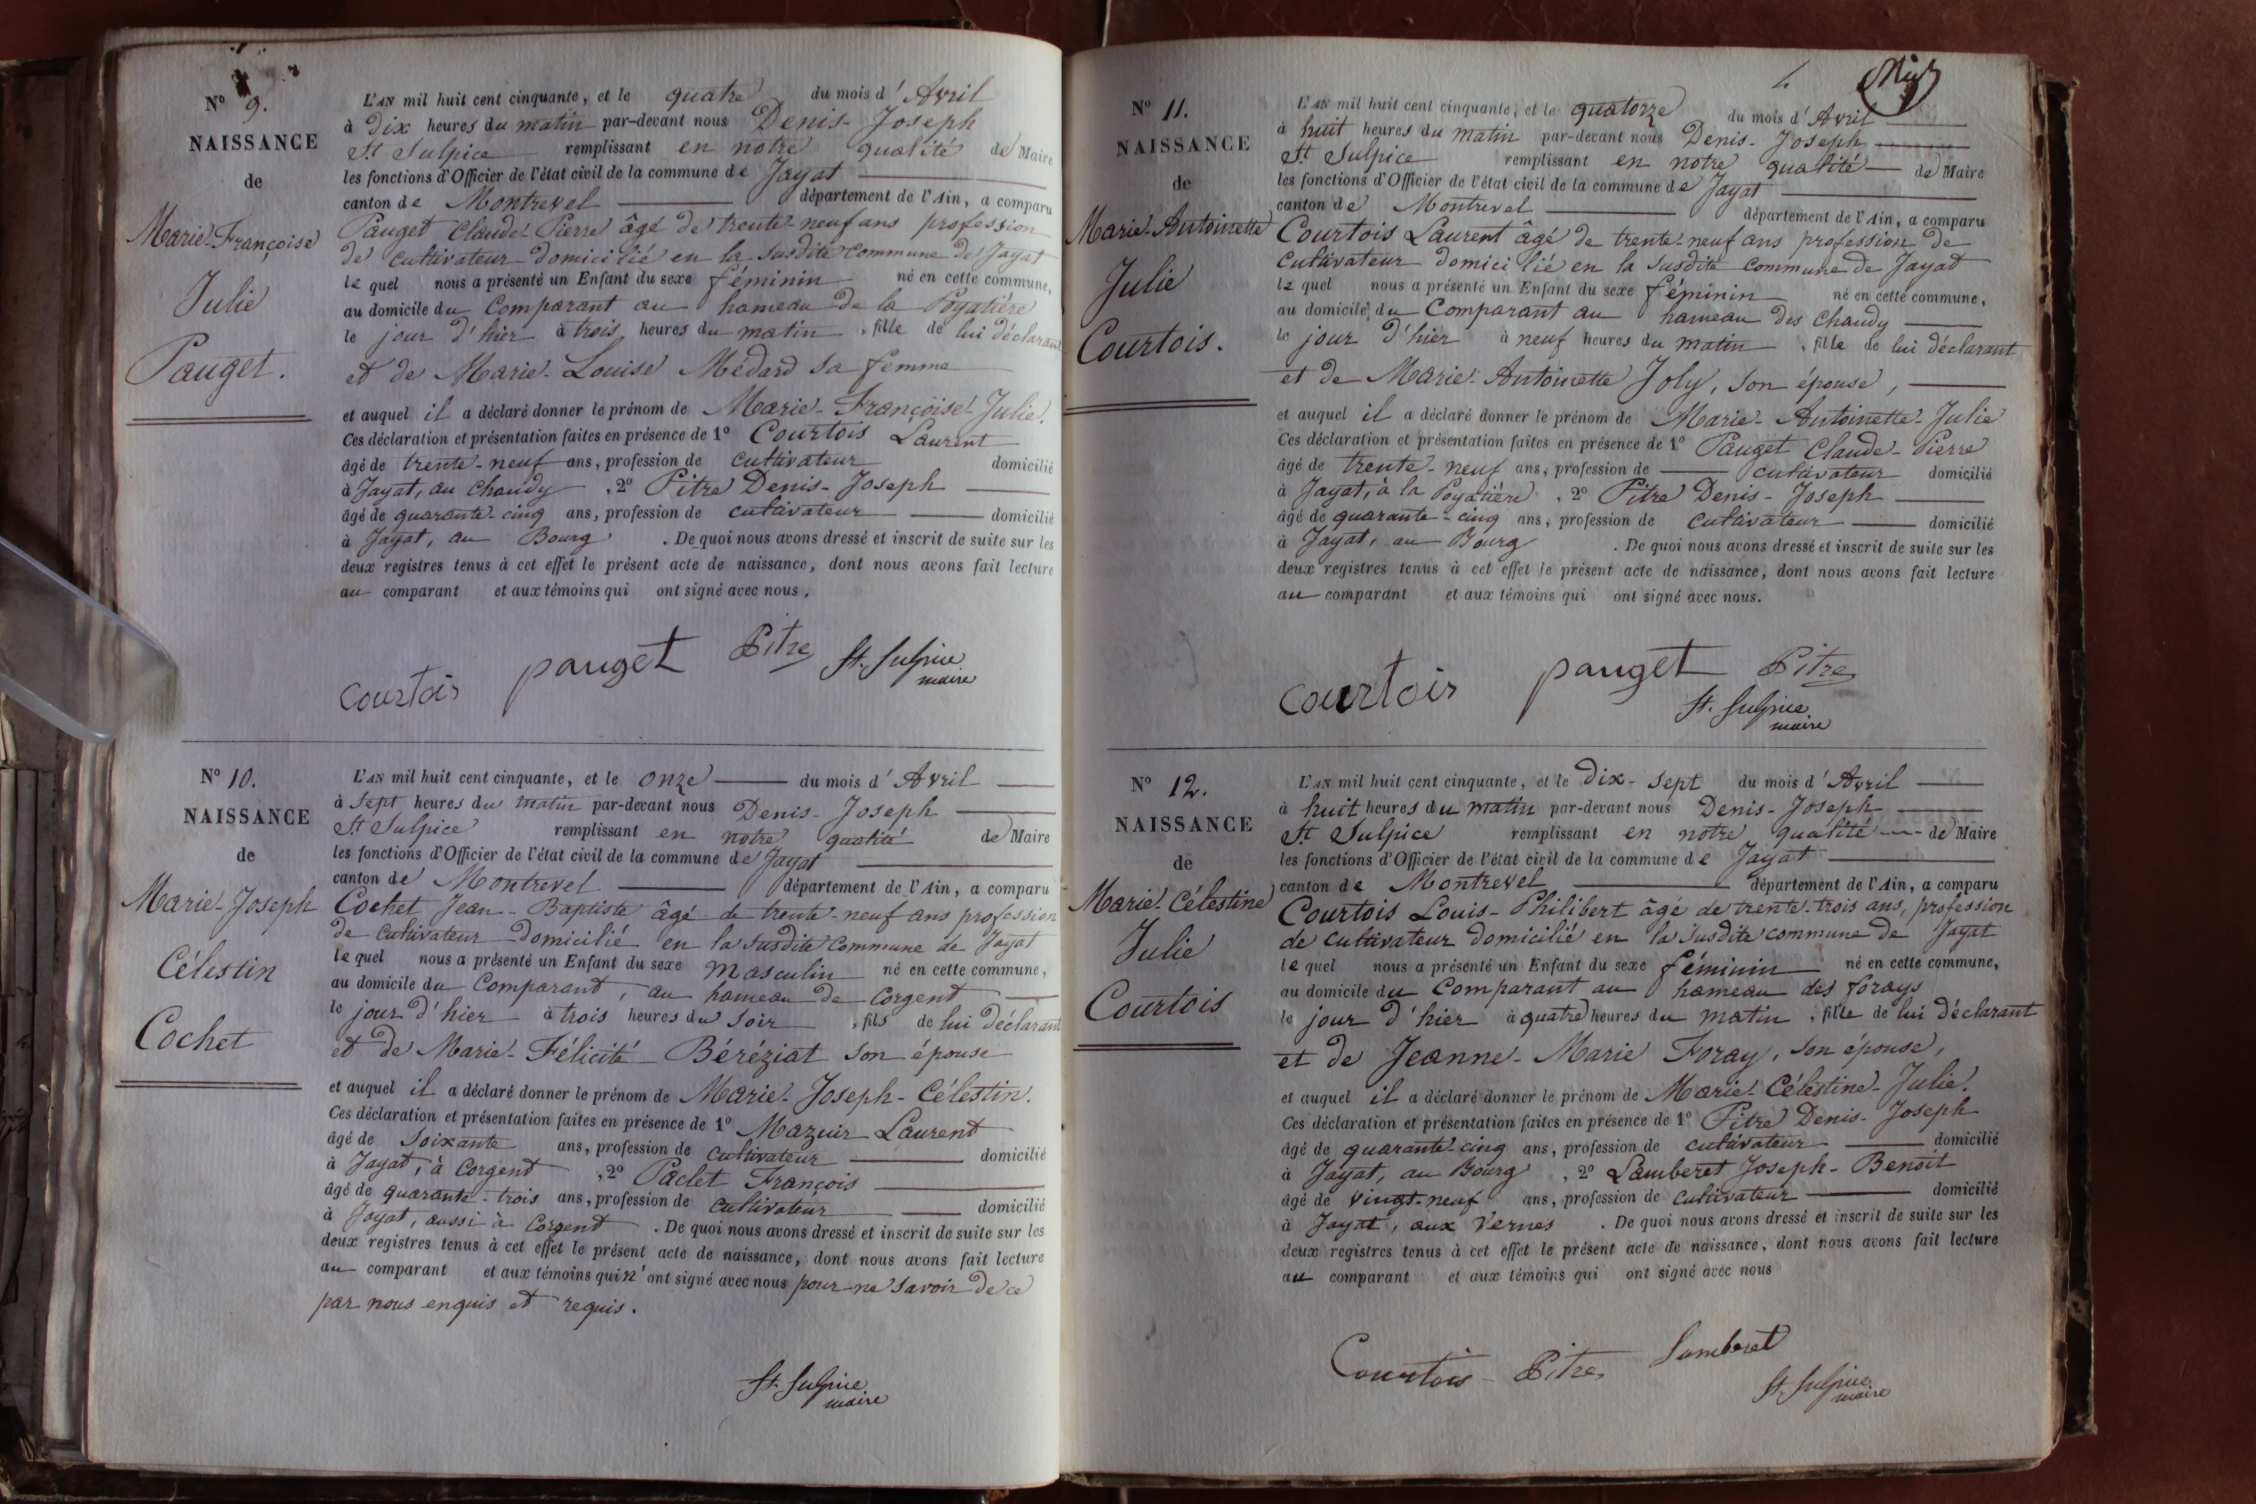 Nº 9.
NAISSANCE
de
Marie-Françoise
Julie
Pauget.
L'AN mil huit cent cinquante, et le quatre du mois d'Avril
à dix heures du matin par-devant nous Denis-Joseph
St Sulpice remplissant en notre qualité de Maire
les fonctions d'Officier de l'état civil de la commune de Jayat
canton de Montrevel département de l'Ain, a comparu
Pauget Claude-Pierre âgé de trente-neuf ans profession
de cultivateur domicilié en la susdite commune de Jayat
lequel nous a présenté un Enfant du sexe féminin né en cette commune,
au domicile du Comparant au hameau de la Poyatière
le jour d'hier à trois heures du matin, fille de lui déclarant
et de Marie-Louise Médard sa femme
et auquel il a déclaré donner le prénom de Marie-Françoise-Julie.
Ces déclaration et présentation faites en présence de 1º Courtois Laurent
âgé de trente-neuf ans, profession de cultivateur domicilié
à Jayat, au Chaudy, 2º Pitre Denis-Joseph
âgé de quarante-cinq ans, profession de cultivateur domicilié
à Jayat, au Bourg. De quoi nous avons dressé et inscrit de suite sur les
deux registres tenus à cet effet le présent acte de naissance, dont nous avons fait lecture
au comparant et aux témoins qui ont signé avec nous.
Courtois pauget Pitre St. Sulpice
maire
Nº 10.
NAISSANCE
de
Marie-Joseph
Célestin
Cochet
L'AN mil huit cent cinquante, et le onze du mois d'Avril
à sept heures du matin par-devant nous Denis-Joseph
St Sulpice remplissant en notre qualité de Maire
les fonctions d'Officier de l'état civil de la commune de Jayat
canton de Montrevel département de l'Ain, a comparu
Cochet Jean-Baptiste âgé de trente-neuf ans profession
de cultivateur domicilié en la susdite commune de Jayat
lequel nous a présenté un Enfant du sexe masculin né en cette commune,
au domicile du Comparant, au hameau de Corgent
le jour d'hier à trois heures du soir, fils de lui déclarant
et de Marie-Félicité Béréziat son épouse
et auquel il a déclaré donner le prénom de Marie-Joseph-Célestin.
Ces déclaration et présentation faites en présence de 1º Mazuir Laurent
âgé de soixante ans, profession de cultivateur domicilié
à Jayat, à Corgent, 2º Paclet François
âgé de quarante-trois ans, profession de cultivateur domicilié
à Jayat, aussi à Corgent. De quoi nous avons dressé et inscrit de suite sur les
deux registres tenus à cet effet le présent acte de naissance, dont nous avons fait lecture
au comparant et aux témoins qui n'ont signé avec nous pour ne savoir de ce
par nous enquis et requis.
St. Sulpice
maire
4
Nº 11.
NAISSANCE
de
Marie-Antoinette
Julie
Courtois.
L'AN mil huit cent cinquante, et le quatorze du mois d'Avril
à huit heures du matin par-devant nous Denis-Joseph
St Sulpice remplissant en notre qualité de Maire
les fonctions d'Officier de l'état civil de la commune de Jayat
canton de Montrevel département de l'Ain, a comparu
Courtois Laurent âgé de trente-neuf ans profession de
cultivateur domicilié en la susdite commune de Jayat
lequel nous a présenté un Enfant du sexe féminin né en cette commune,
au domicile du Comparant au hameau des Chaudy
le jour d'hier à neuf heures du matin, fille de lui déclarant
et de Marie-Antoinette Joly, son épouse,
et auquel il a déclaré donner le prénom de Marie-Antoinette-Julie
Ces déclaration et présentation faites en présence de 1º Pauget Claude-Pierre
âgé de trente-neuf ans, profession de cultivateur domicilié
à Jayat, à la Poyatière, 2º Pitre Denis-Joseph
âgé de quarante-cinq ans, profession de cultivateur domicilié
à Jayat, au Bourg. De quoi nous avons dressé et inscrit de suite sur les
deux registres tenus à cet effet le présent acte de naissance, dont nous avons fait lecture
au comparant et aux témoins qui ont signé avec nous.
Courtois pauget Pitre
St. Sulpice
maire
Nº 12.
NAISSANCE
de
Marie-Célestine
Julie
Courtois
L'AN mil huit cent cinquante, et le dix-sept du mois d'Avril
à huit heures du matin par-devant nous Denis-Joseph
St Sulpice remplissant en notre qualité de Maire
les fonctions d'Officier de l'état civil de la commune de Jayat
canton de Montrevel département de l'Ain, a comparu
Courtois Louis-Philibert âgé de trente-trois ans, profession
de cultivateur domicilié en la susdite commune de Jayat
lequel nous a présenté un Enfant du sexe féminin né en cette commune,
au domicile du Comparant au hameau des forays
le jour d'hier à quatre heures du matin, fille de lui déclarant
et de Jeanne-Marie Foray, son épouse,
et auquel il a déclaré donner le prénom de Marie-Célestine-Julie.
Ces déclaration et présentation faites en présence de 1º Pitre Denis-Joseph
âgé de quarante-cinq ans, profession de cultivateur domicilié
à Jayat, au Bourg, 2º Lamberet Joseph-Benoît
âgé de vingt-neuf ans, profession de cultivateur domicilié
à Jayat, aux Vernes. De quoi nous avons dressé et inscrit de suite sur les
deux registres tenus à cet effet le présent acte de naissance, dont nous avons fait lecture
au comparant et aux témoins qui ont signé avec nous
Courtois Pitre Lamberet
St. Sulpice
maire